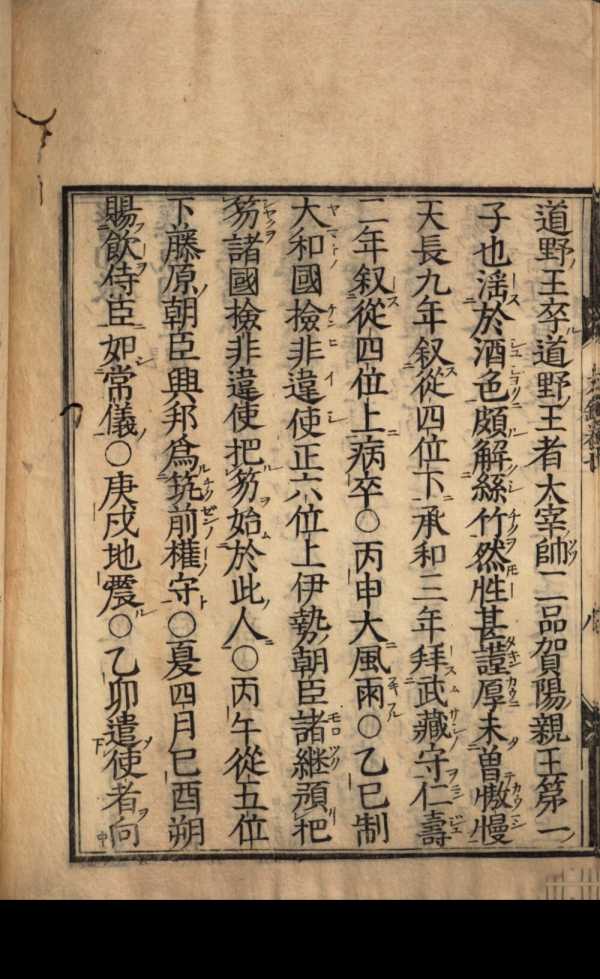 道野王卒道野王者太宰帥二品賀陽親王第一
子也滛於酒色頗解絲竹然性甚謹厚未曽慠慢
天長九年叙從四位下承和三年拜武藏守仁壽
二年叙從四位上病卒〇丙申大風雨〇乙巳制
大和國撿非違使正六位上伊勢朝臣諸継預把
笏諸國撿非違使把笏始於此人〇丙午從五位
下藤原朝臣興邦爲筑前權守〇夏四月巳酉朔
賜飲侍臣如常儀〇庚戌地震〇乙卯遣使者向